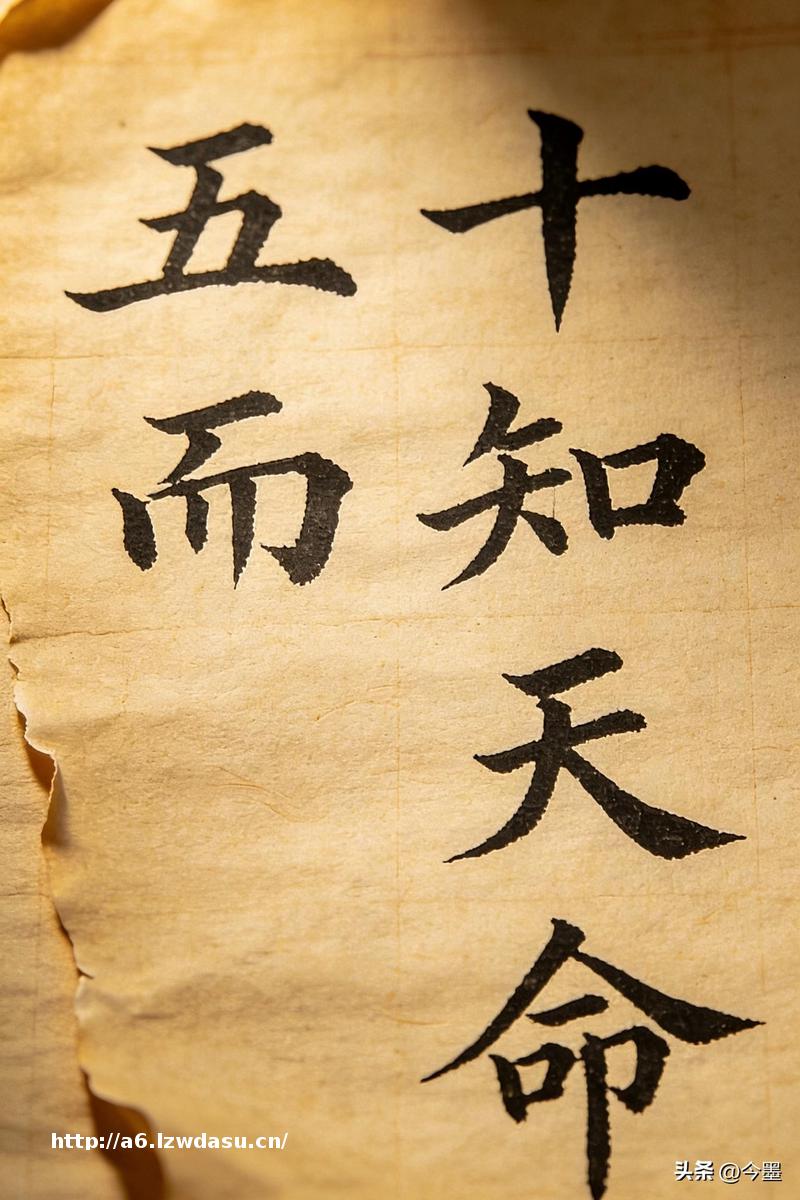 五十
而知
天
命
http://a6.lzwdasu.cn/
头条 @今墨